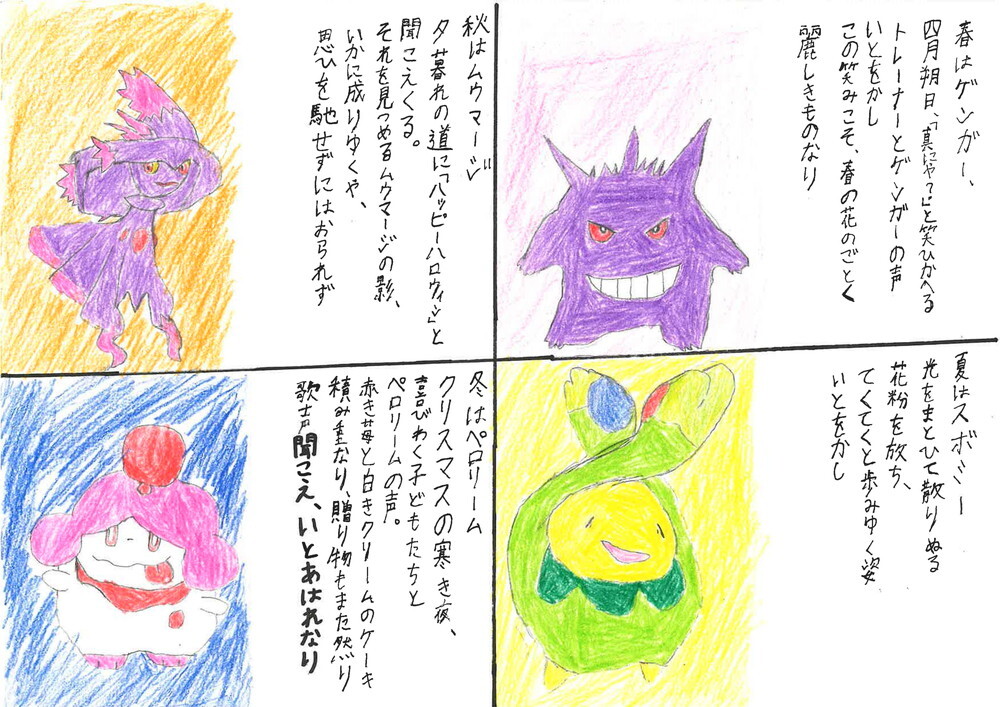 春はゲンガー、
四月朔日、「真にや？」と笑ひかへる
トレーナーとゲンガーの声
いとをかし
この笑みこそ、春の花のごとく
麗しきものなり
夏はスボミー
光をまとひて散りぬる
花粉を放ち、
てくてくと歩みゆく姿
いとをかし
秋はムウマージ
夕暮れの道に「ハッピーハロウィン」と
聞こえくる。
それを見つめるムウマージの影、
いかに成りゆくや、
思ひを馳せずにはおられず
冬はペロリーム
クリスマスの寒き夜、
喜びわく子どもたちと
ペロリームの声。
赤き苺と白きクリームのケーキ
積み重なり、贈り物もまた然り
歌声聞こえ、いとあはれなり